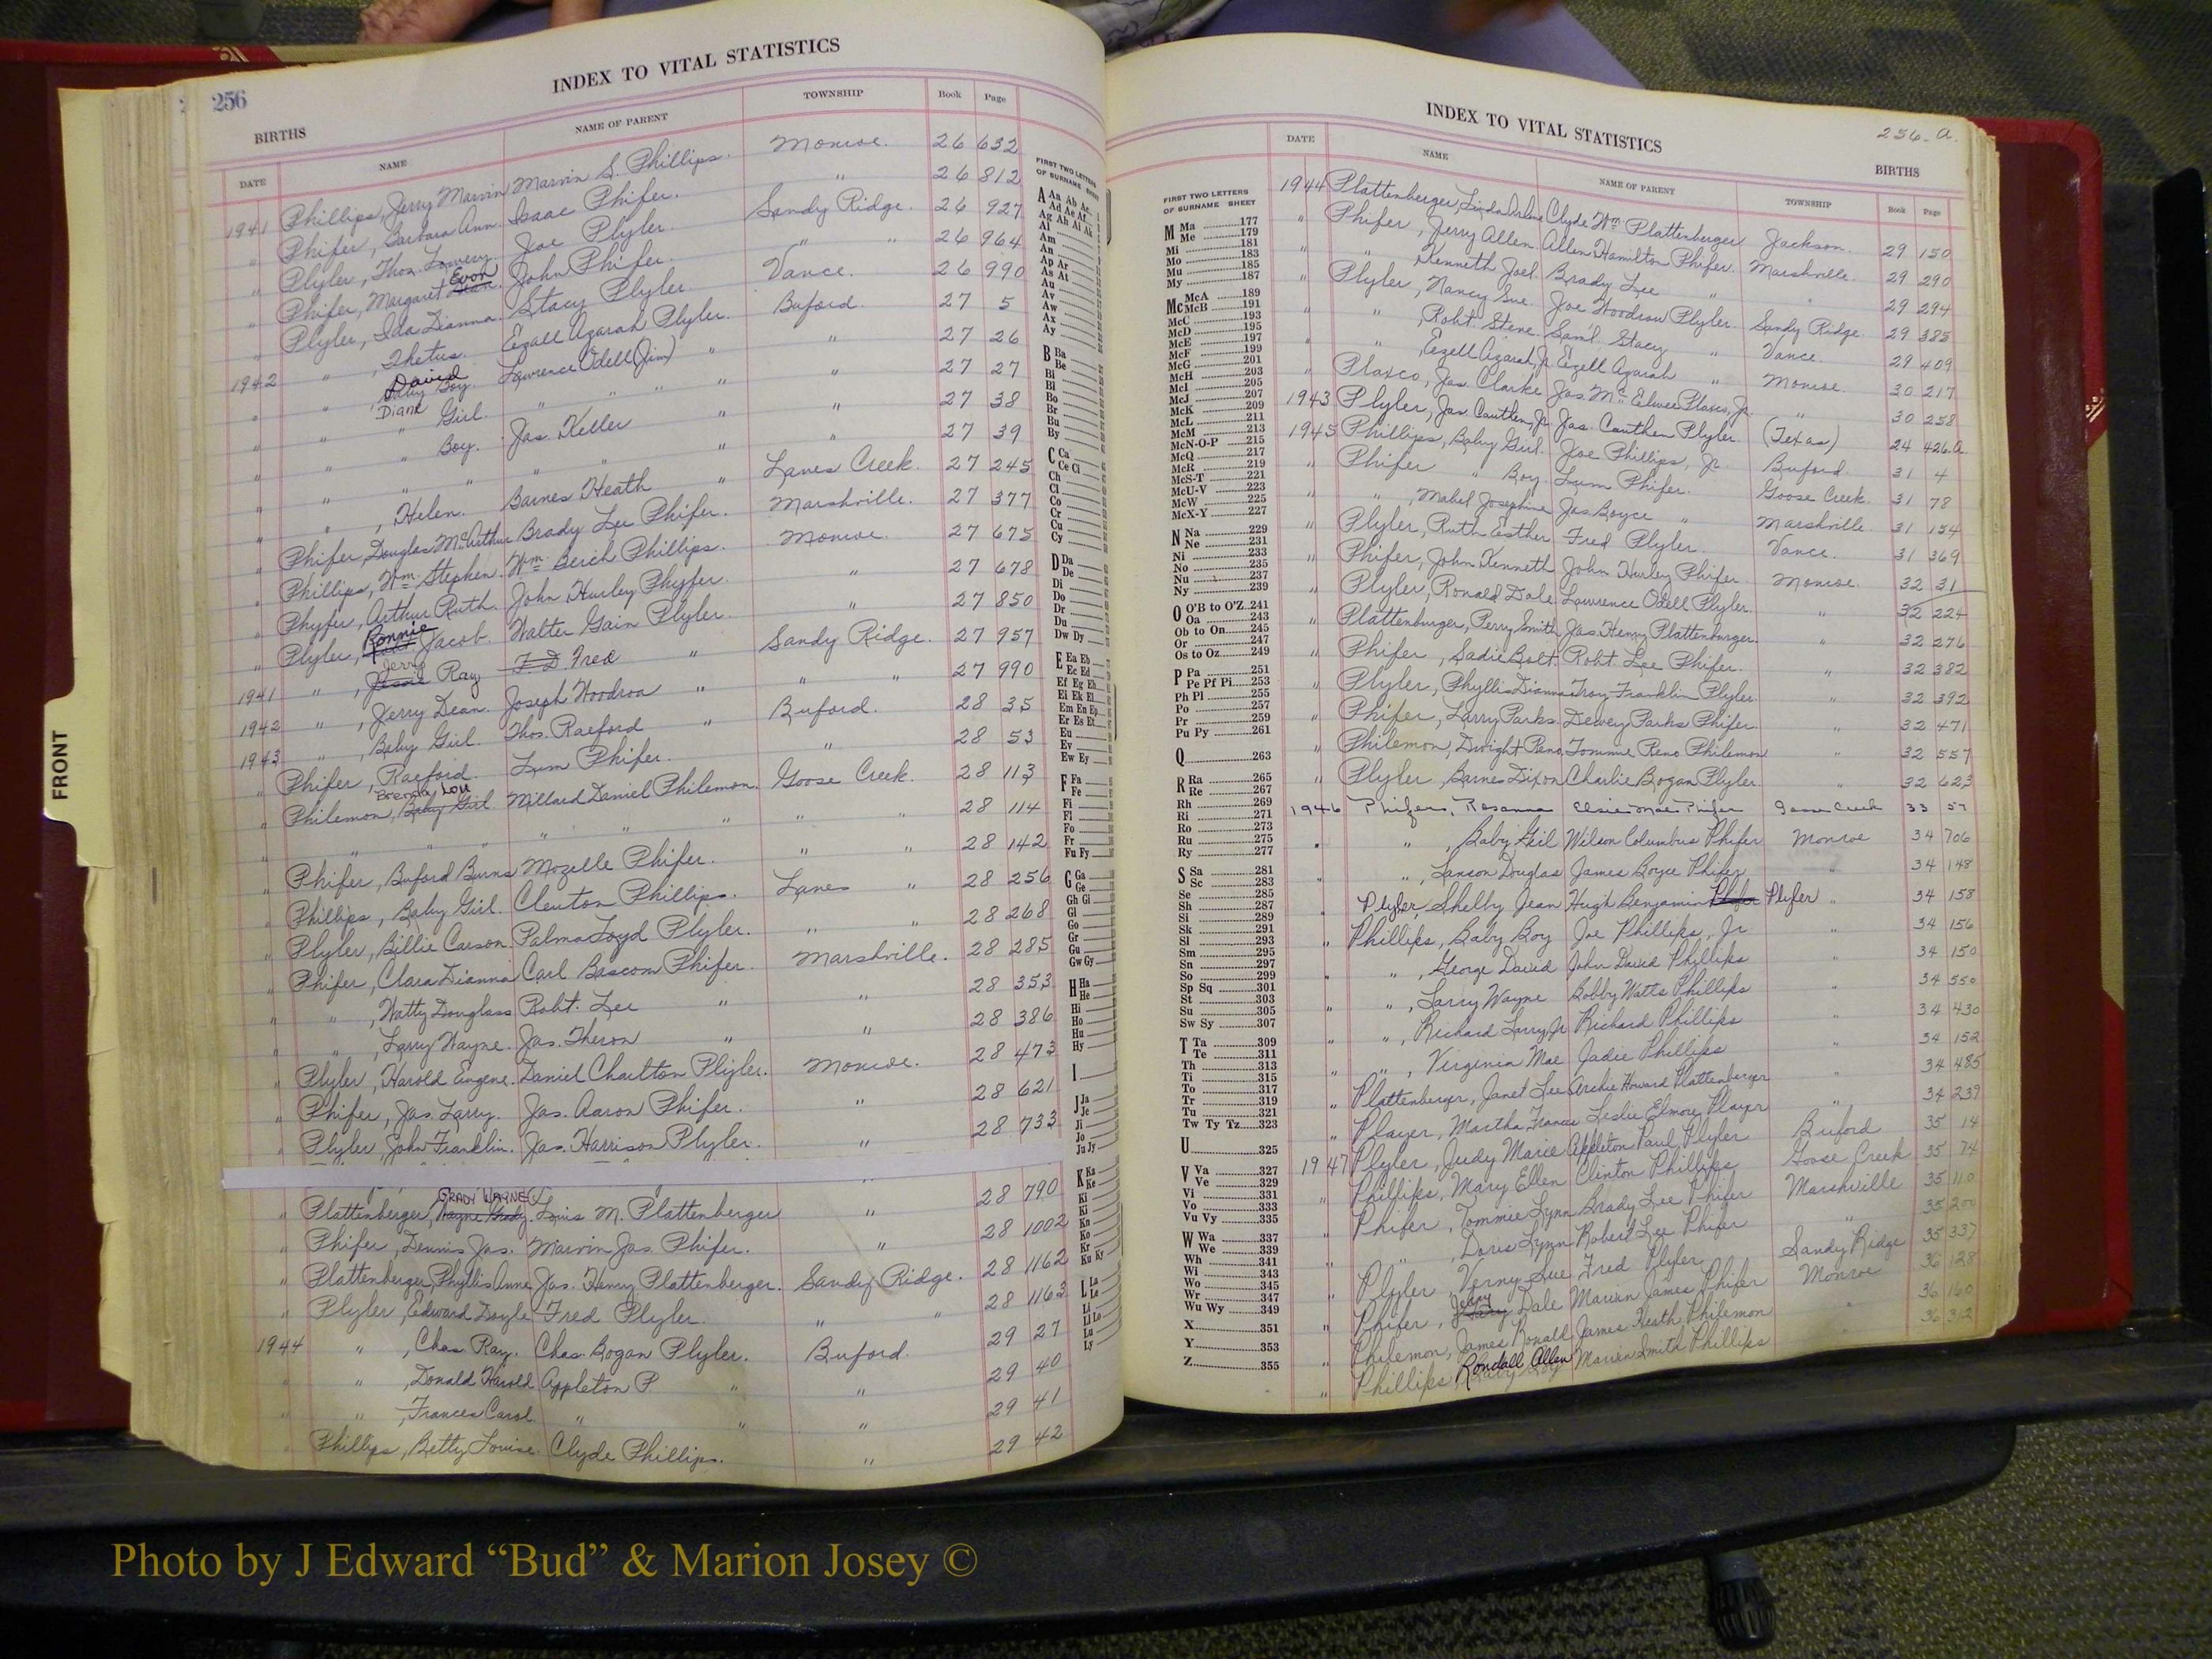 256
INDEX TO VITAL STATISTICS
BIRTHS
DATE NAME NAME OF PARENT TOWNSHIP Book Page
1941 Phillips, Jerry Marvin Marvin S. Phillips. Monroe. 26 632
" Phifer, Barbara Ann. Isaac Phifer. " 26 812
" Plyler, Thos. Lowery Joe Plyler. Sandy Ridge. 26 927
" Phifer, Margaret Evon John Phifer. " " 26 964
" Plyler, Ida Dianna. Stacy Plyler. Vance. 26 990
1942 " , Thetus. Ezall Azarah Plyler. Buford. 27 5
" " , David Baby Boy. Lawrence Odell (Jim) " " 27 26
" " Diane " Girl. " " " " 27 27
" " " Boy. Jas Keller " " 27 38
" " " " " " " 27 39
" " , Helen. Barnes Heath " Lanes Creek. 27 245
" Phifer, Douglas McArthur Brady Lee Phifer. Marshville. 27 377
" Phillips, Wm. Stephen. Wm. Berch Phillips. Monroe. 27 675
" Phyfer, Arthur Ruth. John Hurley Phyfer. " 27 678
" Plyler, Ronnie Jacob. Walter Gain Plyler. " 27 850
1941 " , Jerry Jessie Ray F. D. Fred " Sandy Ridge. 27 957
1942 " , Jerry Dean. Joseph Woodrow " " " 27 990
1943 " , Baby Girl. Thos. Raeford " Buford. 28 35
" Phifer, Raeford. Lum Phifer. " 28 53
" Philemon, Brenda Lou Baby Girl. Millard Daniel Philemon. Goose Creek. 28 113
" " " " " " " " " 28 114
" Phifer, Buford Burns Mozelle Phifer. " " 28 142
" Phillips, Baby Girl. Clenton Phillips. Lanes " 28 256
" Plyler, Billie Carson. Palma Loyd Plyler. " " 28 268
" Phifer, Clara Dianna Carl Bascom Phifer. Marshville. 28 285
" " , Watty Douglass Robt. Lee " " 28 353
" " , Larry Wayne. Jas. Theron " " 28 386
" Plyler, Harold Eugene. Daniel Charlton Plyler. Monroe. 28 473
" Phifer, Jas. Larry. Jas. Aaron Phifer. " 28 621
" Plyler, John Franklin. Jas. Harrison Plyler. " 28 733
" Plattenberger, GRADY WAYNE Wayne Grady. Louis M. Plattenberger " 28 790
" Phifer, Dennis Jas. Marvin Jas. Phifer. " 28 1002
" Plattenberger, Phyllis Anne Jas. Henry Plattenberger. Sandy Ridge. 28 1162
" Plyler, Edward Doyle Fred Plyler. " " 28 1163
1944 " , Chas. Ray. Chas. Bogan Plyler. Buford. 29 27
" " , Donald Harold Appleton P. " " 29 40
" " , Frances Carol. " " " 29 41
" Phillips, Betty Louise. Clyde Phillips. " 29 42
FIRST TWO LETTERS
OF SURNAME SHEET
A Aa Ab Ac
Ad Ae Af
Ag Ah Ai Ak
Al
Am
An
Ap Ar
As At
Au
Av
Aw
Ax
Ay
B Ba
Be
Bi
Bl
Bo
Br
Bu
By
C Ca
Ce Ci
Ch
Cl
Co
Cr
Cu
Cy
D Da
De
Di
Do
Dr
Du
Dw Dy
E Ea Eb
Ec Ed
Ef Eg Eh
Ei Ek El
Em En Ep
Er Es Et
Eu
Ev
Ew Ey
F Fa
Fe
Fi
Fl
Fo
Fr
Fu Fy
G Ga
Ge
Gh Gi
Gl
Go
Gr
Gu
Gw Gy
H Ha
He
Hi
Ho
Hu
Hy
I
J Ja
Je
Ji
Jo
Ju Jy
K Ka
Ke
Ki
Kl
Kn
Ko
Kr
Ku Ky
L La
Le
Li
Ll Lo
Lu
Ly
FRONT
INDEX TO VITAL STATISTICS
256-a.
BIRTHS
DATE NAME NAME OF PARENT TOWNSHIP Book Page
FIRST TWO LETTERS
OF SURNAME SHEET
M Ma 177
Me 179
Mi 181
Mo 183
Mu 185
My 187
Mc McA 189
McB 191
McC 193
McD 195
McE 197
McF 199
McG 201
McH 203
McI 205
McJ 207
McK 209
McL 211
McM 213
McN-O-P 215
McQ 217
McR 219
McS-T 221
McU-V 223
McW 225
McX-Y 227
N Na 229
Ne 231
Ni 233
No 235
Nu 237
Ny 239
O O'B to O'Z 241
Oa 243
Ob to On 245
Or 247
Os to Oz 249
P Pa 251
Pe Pf Pi 253
Ph Pl 255
Po 257
Pr 259
Pu Py 261
Q 263
R Ra 265
Re 267
Rh 269
Ri 271
Ro 273
Ru 275
Ry 277
S Sa 281
Sc 283
Se 285
Sh 287
Si 289
Sk 291
Sl 293
Sm 295
Sn 297
So 299
Sp Sq 301
St 303
Su 305
Sw Sy 307
T Ta 309
Te 311
Th 313
Ti 315
To 317
Tr 319
Tu 321
Tw Ty Tz 323
U 325
V Va 327
Ve 329
Vi 331
Vo 333
Vu Vy 335
W Wa 337
We 339
Wh 341
Wi 343
Wo 345
Wr 347
Wu Wy 349
X 351
Y 353
Z 355
1944 Plattenberger, Linda Arlene Clyde Wm. Plattenberger Jackson. 29 150
" Phifer, Jerry Allen. Allen Hamilton Phifer. Marshville. 29 290
" " Kenneth Joel. Brady Lee " " 29 294
" Plyler, Nancy Sue. Joe Woodrow Plyler. Sandy Ridge. 29 385
" " , Robt. Steve. Saml. Stacy " Vance. 29 409
" " , Ezell Azarah, Jr. Ezell Azarah " Monroe. 30 217
" Plaxco, Jas. Clarke Jas. McElwee Plaxco, Jr. " 30 258
1943 Plyler, Jas. Cauthen, Jr. Jas. Cauthen Plyler. (Texas) 24 426.a.
1945 Phillips, Baby Girl. Joe Phillips, Jr. Buford. 31 4
" Phifer " Boy. Lum Phifer. Goose Creek. 31 78
" " , Mabel Josephine Jas. Boyce " Marshville. 31 154
" Plyler, Ruth Esther Fred Plyler. Vance. 31 369
" Phifer, John Kenneth John Hurley Phifer. Monroe. 32 31
" Plyler, Ronald Dale. Lawrence Odell Plyler. " 32 224
" Plattenburger, Perry Smith Jas. Henry Plattenburger. " 32 276
" Phifer, Sadie Bolt. Robt. Lee Phifer. " 32 382
" Plyler, Phyllis Dianna Troy Franklin Plyler. " 32 392
" Phifer, Larry Parks. Dewey Parks Phifer. " 32 471
" Philemon, Dwight Reno. Tommie Reno Philemon " 32 557
" Plyler, Barnes Dixon Charlie Bogan Plyler. " 32 623
1946 Phifer, Rosanna Elsie Mae Phifer Goose Creek 33 57
" " , Baby Girl Wilson Columbus Phifer Monroe 34 706
" " , Lanson Douglas James Boyce Phifer " 34 148
" Plyler, Shelby Jean Hugh Benjamin Phifer Plyler " 34 158
" Phillips, Baby Boy Joe Phillips, Jr. " 34 156
" " , George David John David Phillips " 34 150
" " , Larry Wayne Bobby Watts Phillips " 34 550
" " , Richard Larry Jr Richard Phillips " 34 430
" " , Virginia Mae Jadie Phillips " 34 152
" Plattenberger, Janet Lee Archie Howard Plattenberger " 34 485
" Player, Martha Frances Leslie Elmore Player " 34 239
1947 Plyler, Judy Marie Appleton Paul Plyler Buford 35 14
" Phillips, Mary Ellen Clinton Phillips Goose Creek 35 74
" Phifer, Tommie Lynn Brady Lee Phifer Marshville 35 110
" " , Doris Lynn Robert Lee Phifer " 35 200
" Plyler Verny Sue Fred Plyler Sandy Ridge 35 337
" Phifer, Jerry Dale Marvin James Phifer Monroe 36 128
" Philemon, James Ronald James Heath Philemon " 36 160
" Phillips, Rondall Allen Baby Boy Marvin Smith Phillips " 36 312
Photo by J Edward “Bud” & Marion Josey ©